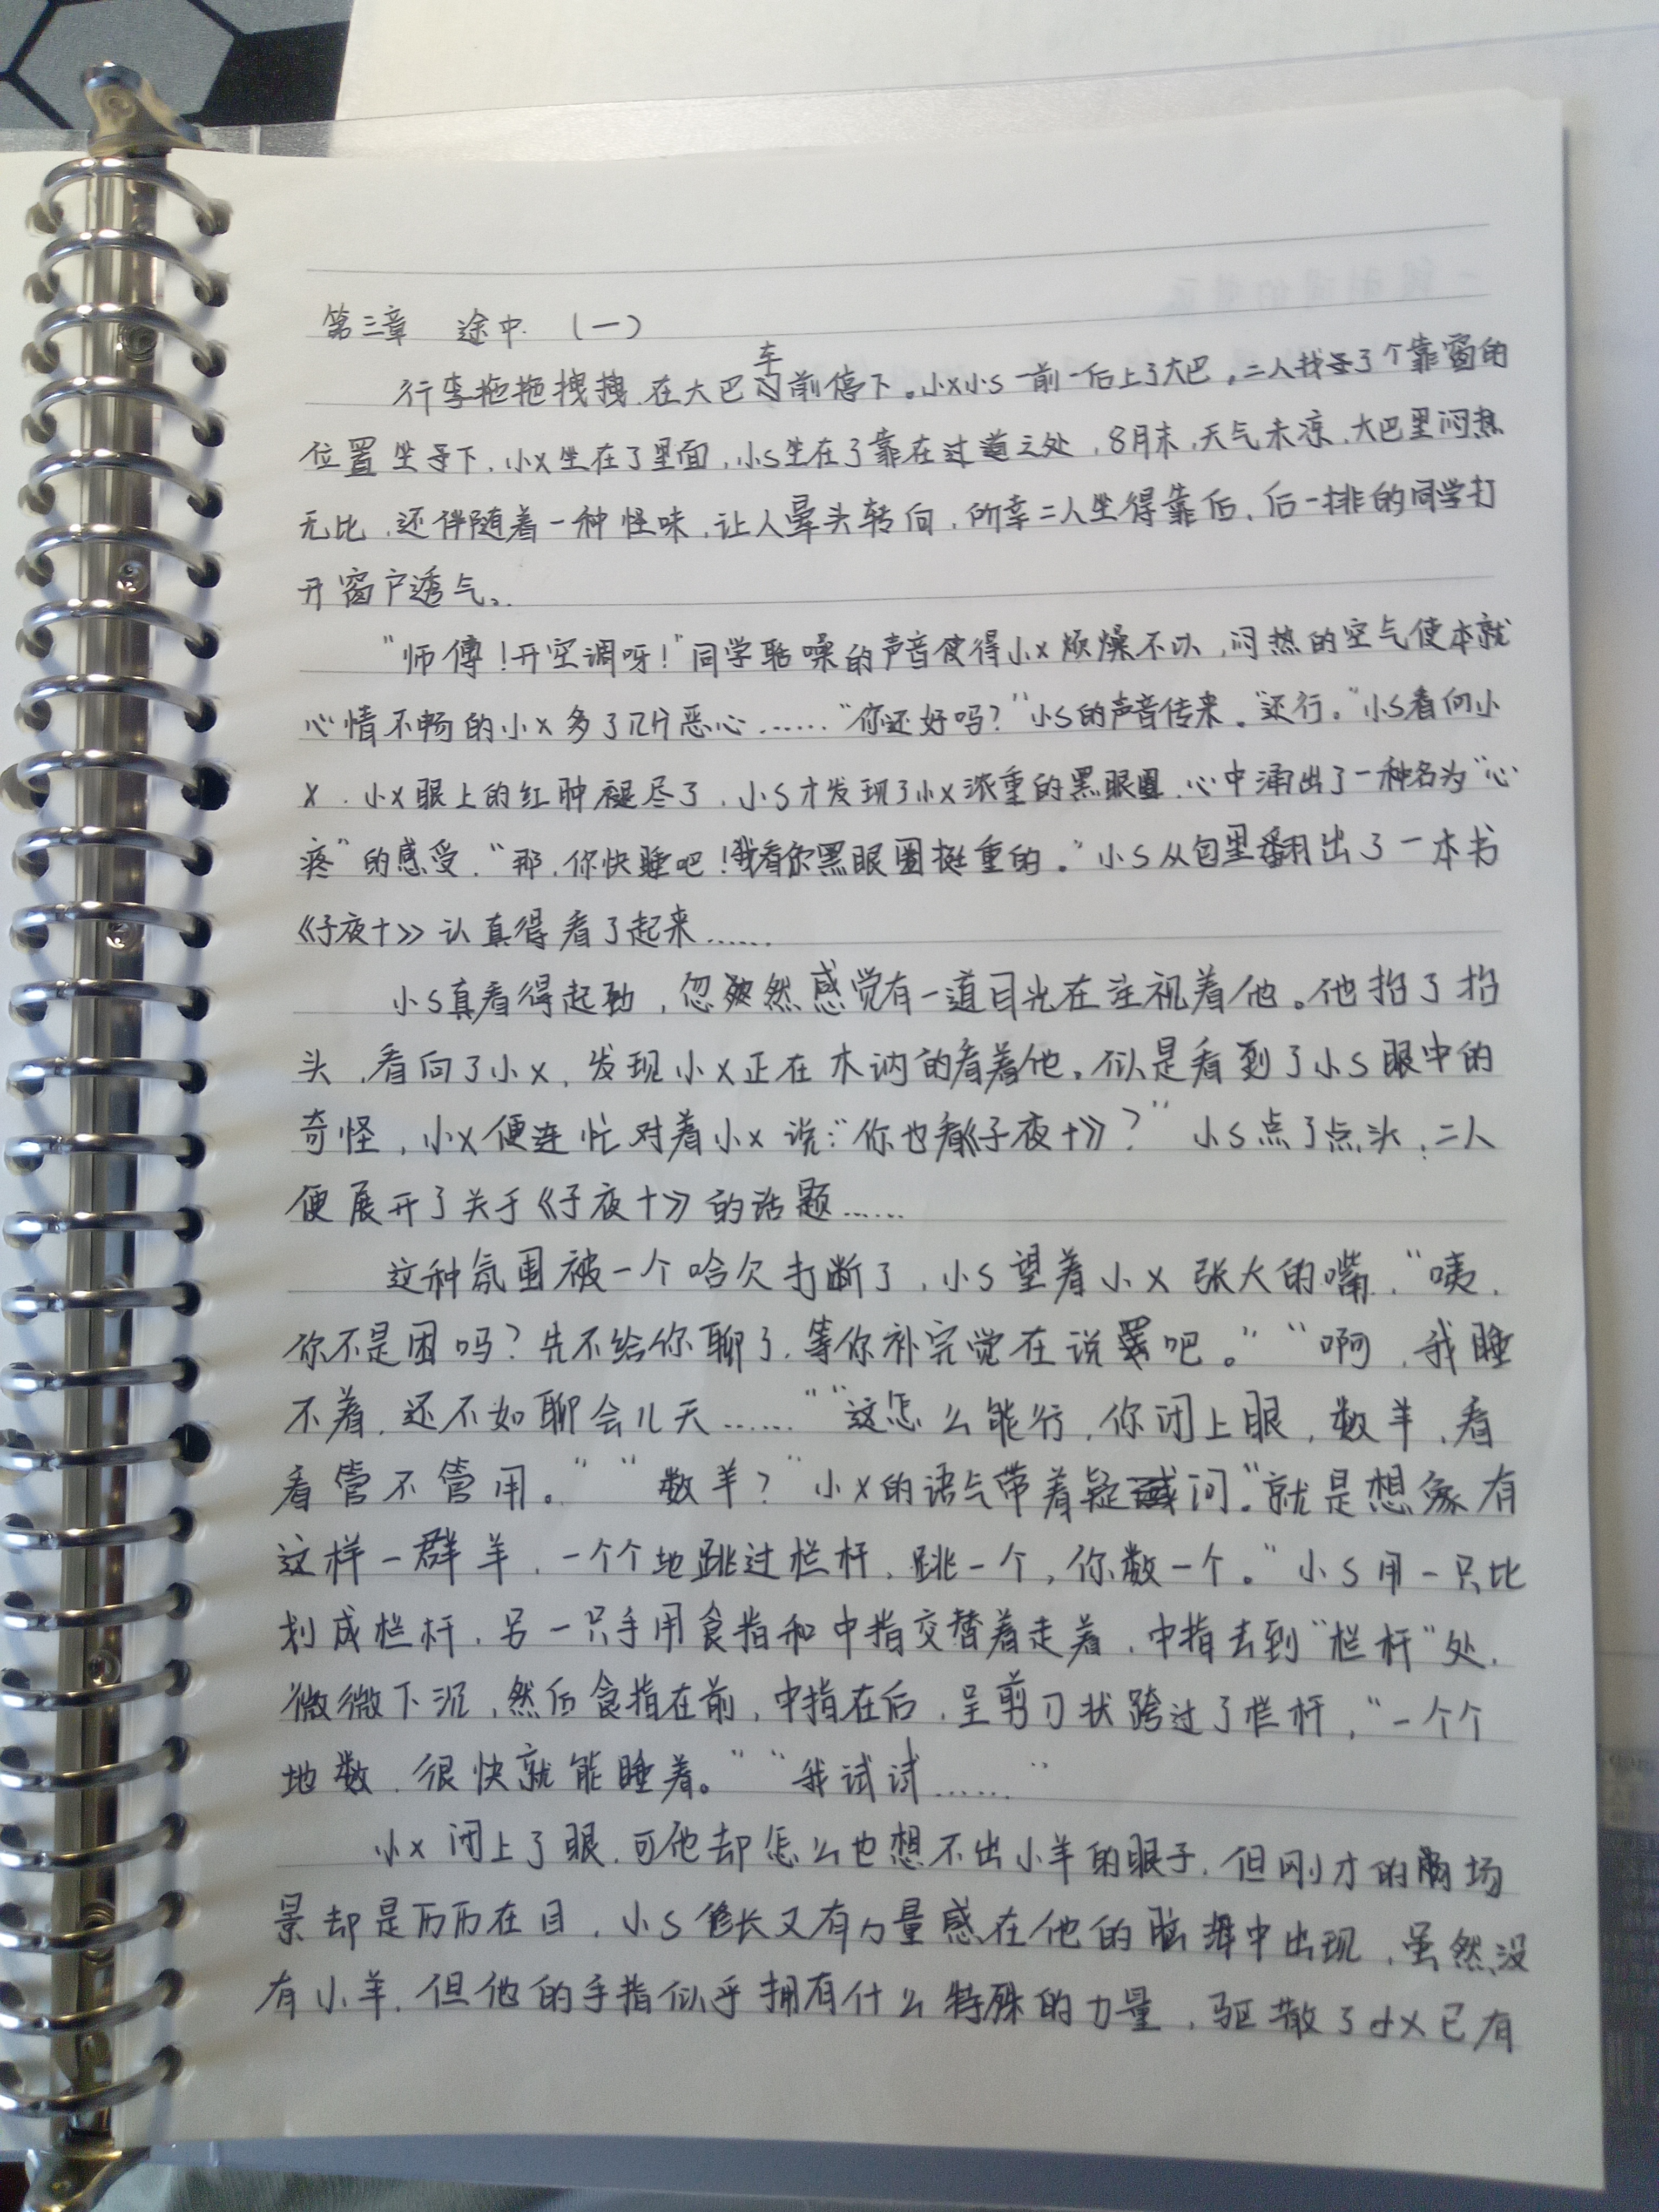 第三章 途中 (一)
行李拖拖拽拽,在大巴车门前停下。小X小S一前一后上了大巴,二人找寻了个靠窗的
位置坐寻下,小X坐在了里面,小S坐在了靠在过道之处,8月末,天气未凉,大巴里闷热
无比,还伴随着一种怪味,让人晕头转向,所幸二人坐得靠后,后一排的同学打
开窗户透气。
“师傅!开空调呀!”同学聒噪的声音使得小X烦燥不以,闷热的空气使本就
心情不畅的小X多了几分恶心……“你还好吗?”小S的声音传来。“还行。”小S看向小
X,小X眼上的红肿褪尽了,小S才发现了小X浓重的黑眼圈,心中涌出了一种名为“心
疼”的感受,“那,你快睡吧!我看你黑眼圈挺重的。”小S从包里翻出了一本书
《子夜十》认真得看了起来……
小S真看得起劲,忽然感觉有一道目光在注视着他。他抬了抬
头,看向了小X,发现小X正在木讷的看着他。似是看到了小S眼中的
奇怪,小X便连忙对着小X说:“你也看《子夜十》?”小S点了点头,二人
便展开了关于《子夜十》的话题……
这种氛围被一个哈欠打断了,小S望着小X张大的嘴,“咦,
你不是困吗?先不给你聊了,等你补完觉在说吧。”“啊,我睡
不着,还不如聊会儿天……”“这怎么能行,你闭上眼,数羊,看
看管不管用。”“数羊?”小X的语气带着疑问。“就是想象有
这样一群羊,一个个地跳过栏杆,跳一个,你数一个。”小S用一只比
划成栏杆,另一只手用食指和中指交替着走着,中指去到“栏杆”处,
微微下沉,然后食指在前,中指在后,呈剪刀状跨过了栏杆,“一个个
地数,很快就能睡着。”“我试试……”
小X闭上了眼,可他却怎么也想不出小羊的眼子,但刚才的场
景却是历历在目,小S修长又有力量感在他的脑海中出现,虽然没
有小羊,但他的手指似乎拥有什么特殊的力量,驱散了小X已有